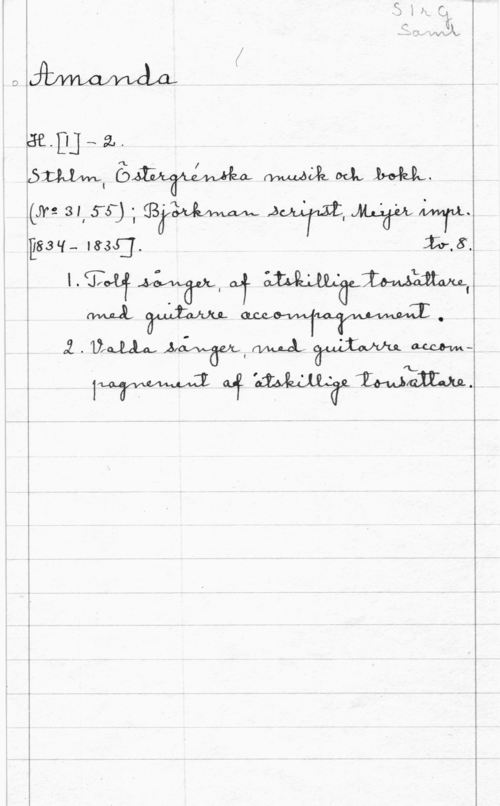 S1rG
Saml
Amanda
H. [1] - 2.
Sthlm, Östergrénska musik och bokh.
(Nº 31, 55); Björkman scripsit, Meijer impr.
[1834 - 1835]. tv. 8.
1. Tolf sånger, af åtskillige tonsättare,
med guitarre accompagnement.
2. Valda sånger, med guitarre accom-
pagnement af åtskillige tonsättare.